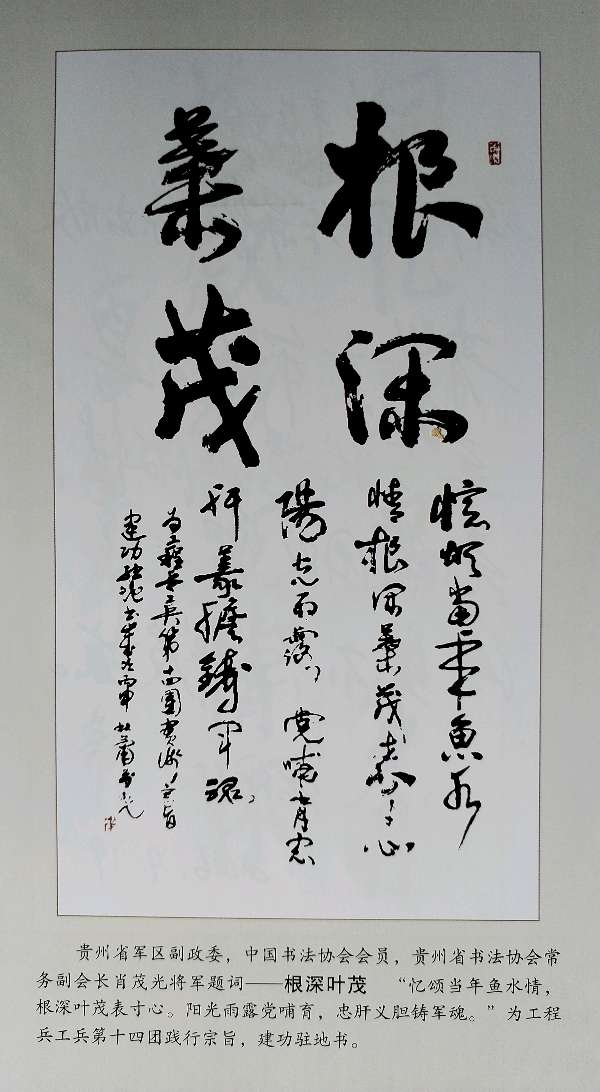 根深
葉茂
憶頌當年魚水
情根深葉茂表寸心
陽光雨露党哺育忠
肝義膽鑄軍魂
为工程兵工兵第十四團践行宗旨
建功驻地书
贵州省军区副政委，中国书法协会会员，贵州省书法协会常
务副会长肖茂光将军题词——根深叶茂　“忆颂当年鱼水情，
根深叶茂表寸心。阳光雨露党哺育，忠肝义胆铸军魂。”为工程
兵工兵第十四团践行宗旨，建功驻地书。